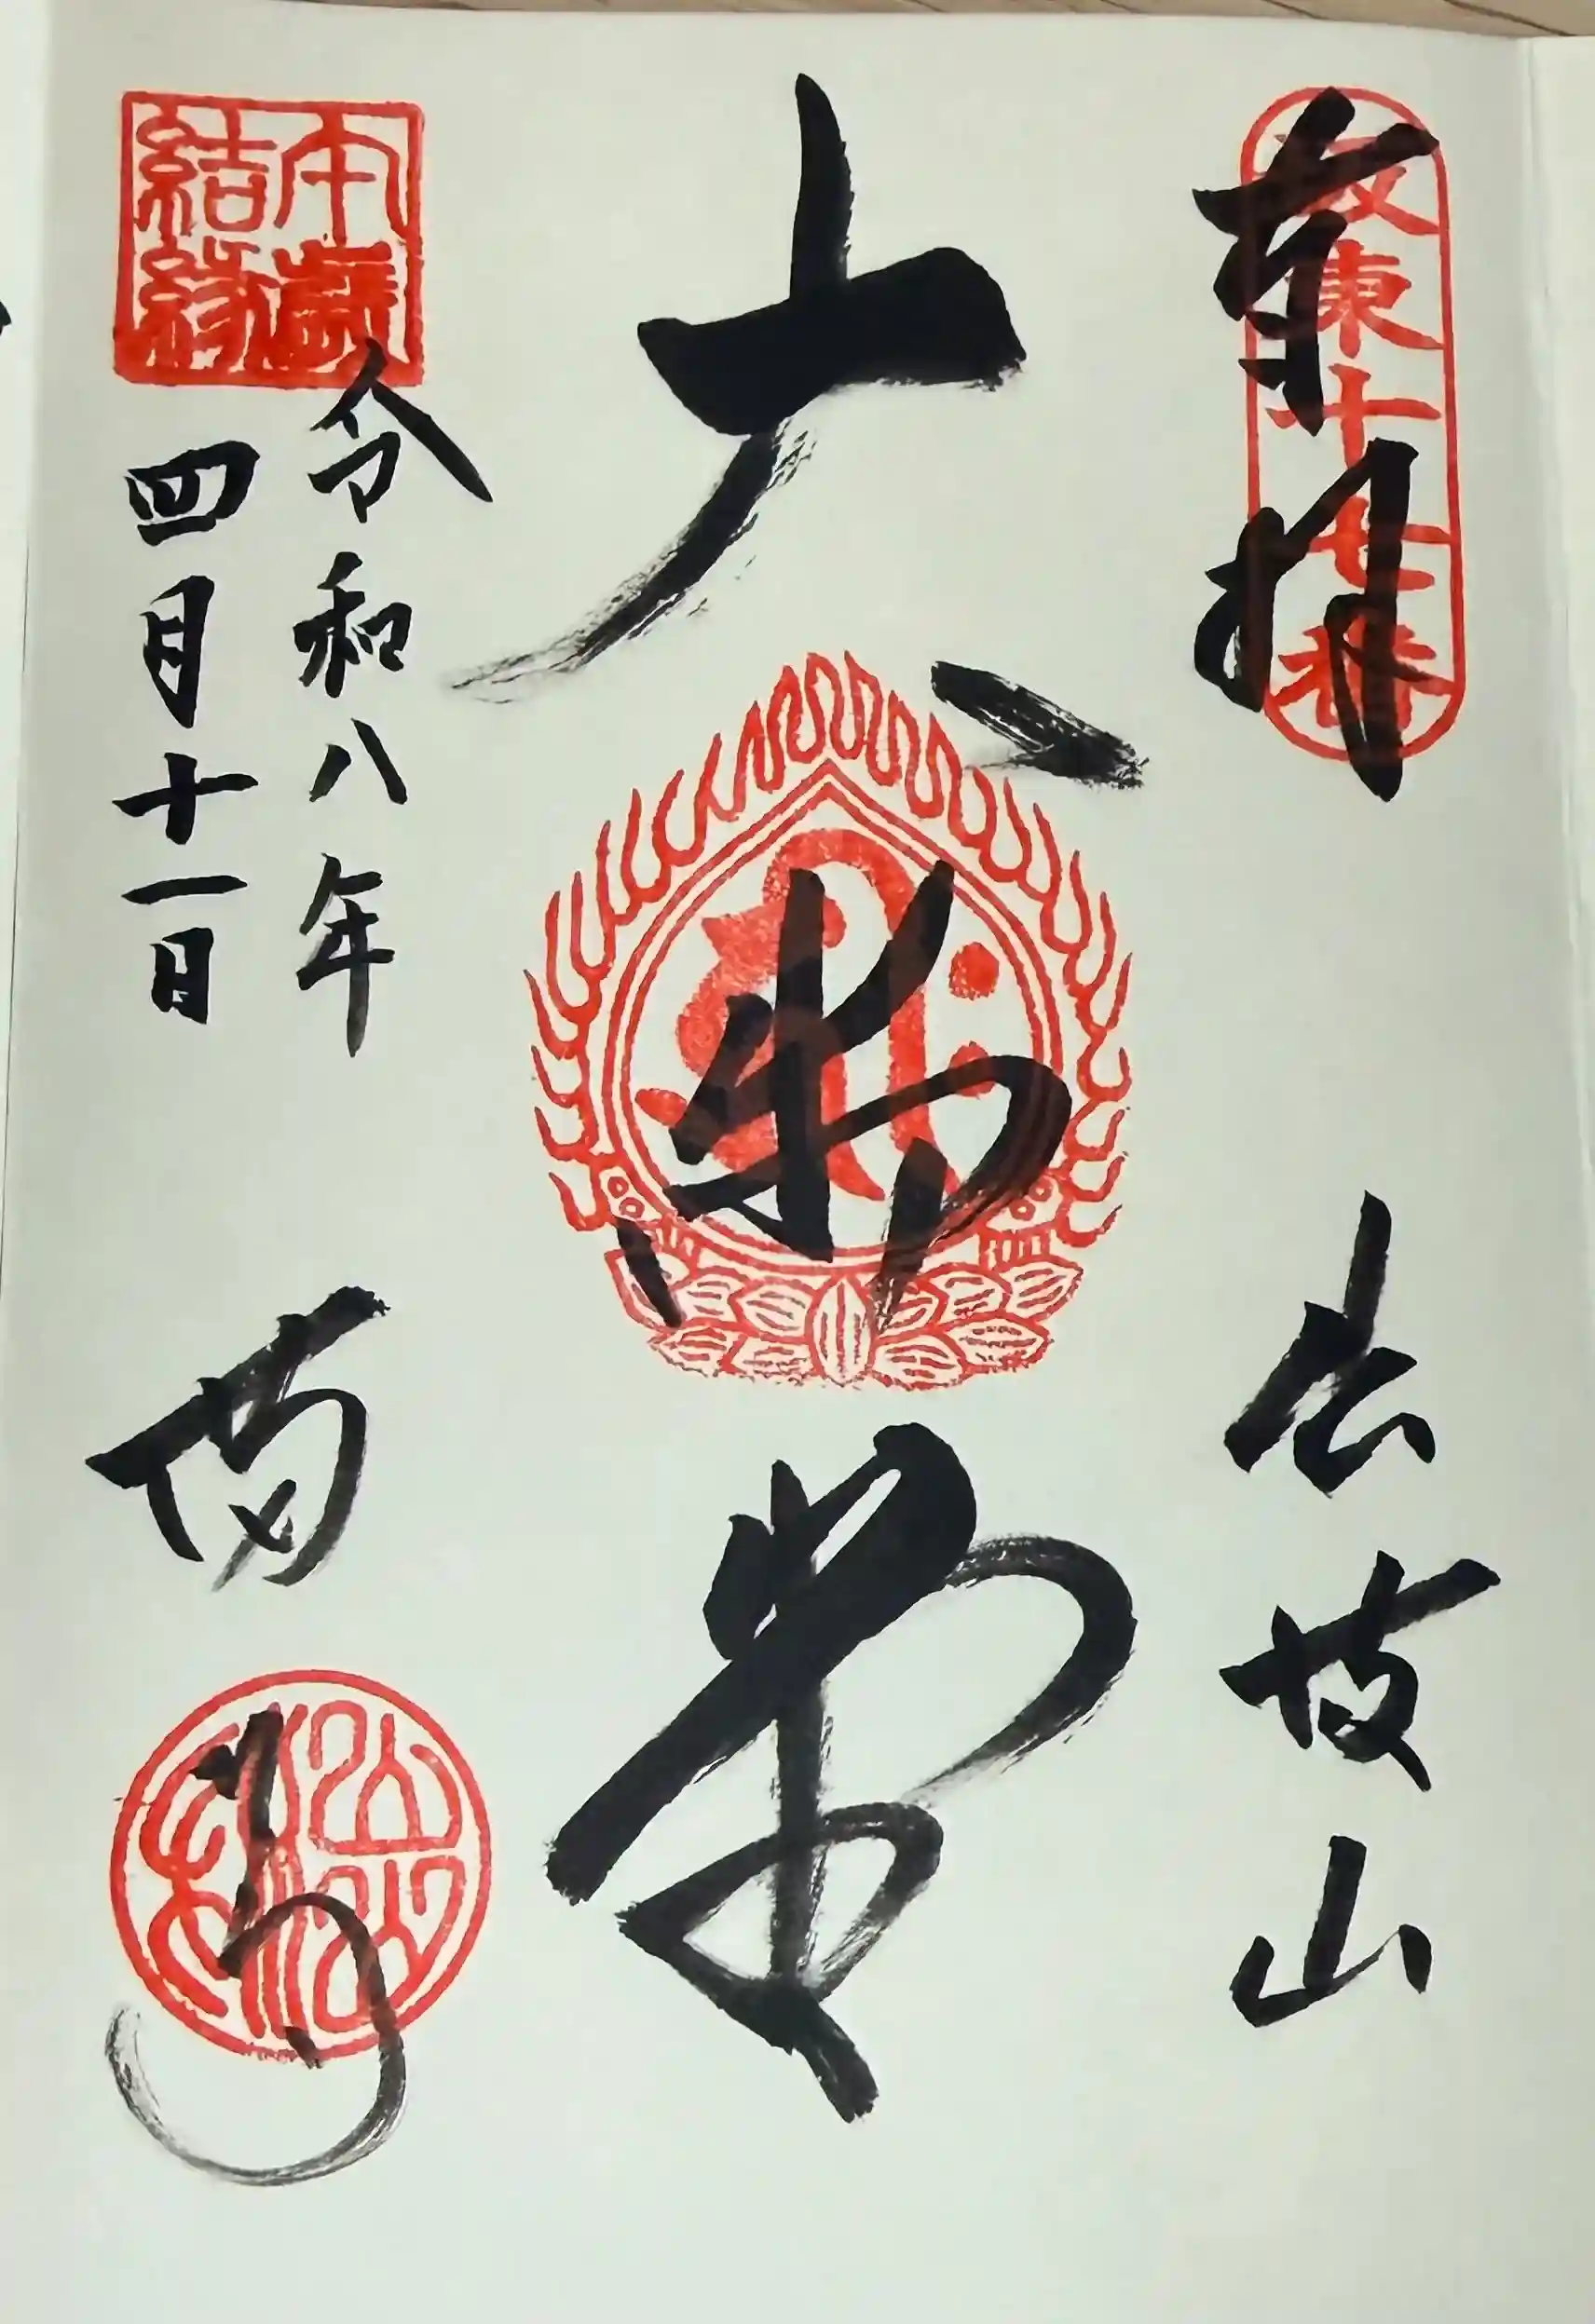 坂東十七番
奉拝
出流山
大悲堂
午歳
結縁
令和八年
四月十一日